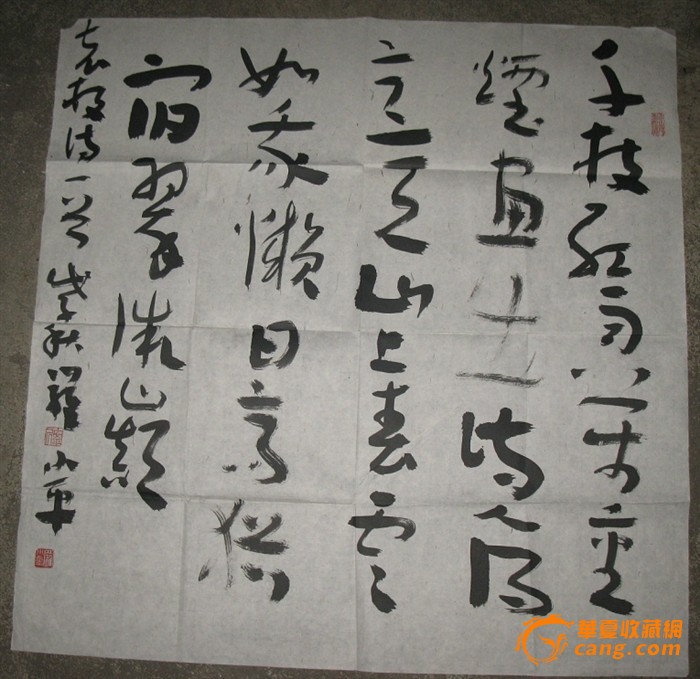 千枝紅雨万重
煙画出诗人得
意天山上春雲
如我懶日高猶
宿翠微巅
袁枚诗一首 戊子秋 小平
華夏收藏網
cang.com